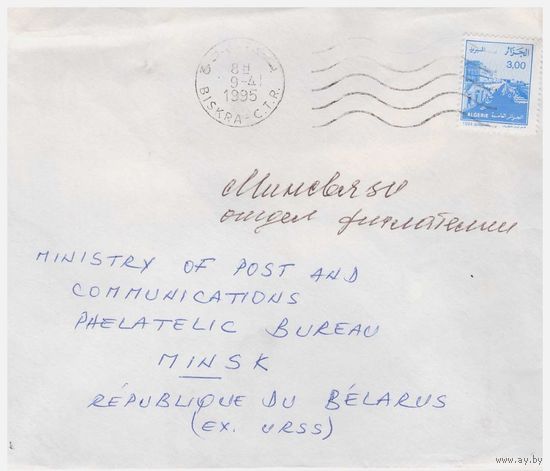 بسكرة
8H
9-4
1995
BISKRA-C.T.R.
الجزائر
3,00
ALGERIE
Минсвязи
отдел филателии
MINISTRY OF POST AND
COMMUNICATIONS
PHELATELIC BUREAU
MINSK
RÉPUBLIQUE DU BÉLARUS
(EX. URSS)
www.ay.by